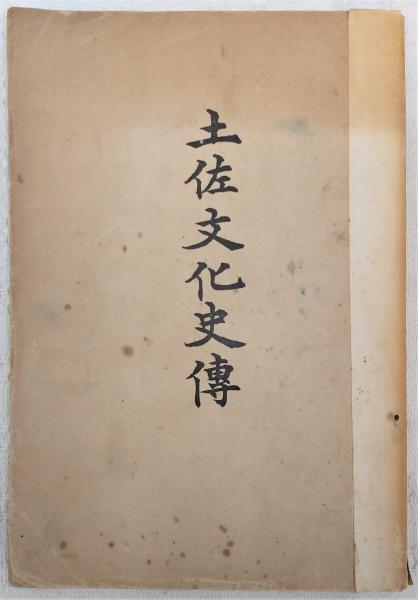 土佐文化史傳